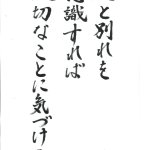 と別れを
識すれば
切なことに気づけ